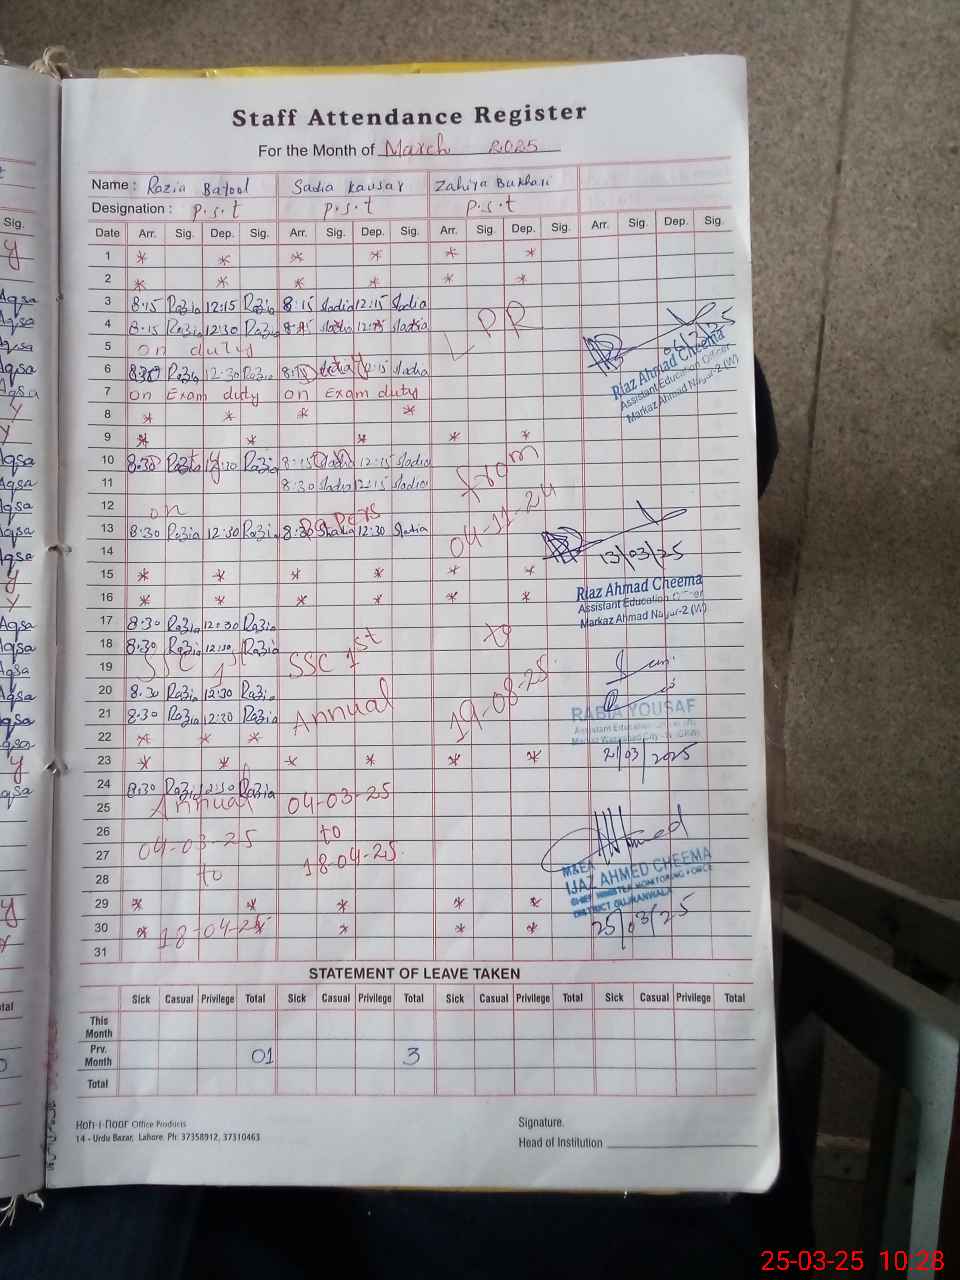 Staff Attendance Register
For the Month of March 2025
Name : Razia Batool Sadia Kausar Zahira Bukhari
Designation : P.S.t P.S.t P.S.t
Sig.
Date Arr. Sig. Dep. Sig. Arr. Sig. Dep. Sig. Arr. Sig. Dep. Sig. Arr. Sig. Dep. Sig.
1 * * * * * *
2 * * * * * *
Aqsa 3 8:15 Razia 12:15 Razia 8:15 Sadia 12:15 Sadia
Aqsa 4 8:15 Razia 12:30 Razia Sadia Sadia LPR
Aqsa 5 on duty
Riaz Ahmad Cheema
Assistant Education Officer
Markaz Ahmad Nagar-2 (W)
Aqsa 6 Razia 12:30 Razia 12:15 Sadia
Aqsa 7 on Exam duty on Exam duty
8 * * * *
9 * * * * *
Aqsa 10 8:30 Razia Razia 8:15 12:15 Sadia from
Aqsa 11 8:30 Sadia 12:15 Sadia
Aqsa 12 on Papers
Aqsa 13 8:30 Razia 12:30 Razia 8:30 12:30 Sadia 04-11-24
Aqsa 14 13/03/25
15 * * * * * *
16 * * * * * *
Riaz Ahmad Cheema
Assistant Education Officer
Markaz Ahmad Nagar-2 (W)
Aqsa 17 8:30 Razia 12:30 Razia
Aqsa 18 8:30 Razia 12:30 Razia to
Aqsa 19 SSC 1st SSC 1st
Aqsa 20 8:30 Razia 12:30 Razia 19-08-25
Aqsa 21 8:30 Razia 12:30 Razia Annual
RABIA YOUSAF
Aqsa 22 * * *
23 * * * * * * 21/03/2025
Aqsa 24 8:30 Razia 12:30 Razia
25 Annual 04-03-25
26 to
27 04-03-25 18-04-25
28 to
M&EA
IJAZ AHMED CHEEMA
CHIEF MINISTER MONITORING FORCE
DISTRICT GUJRANWALA
29 * * * * *
30 * 18-04-25 * * * 25/03/25
31
STATEMENT OF LEAVE TAKEN
Sick Casual Privilege Total Sick Casual Privilege Total Sick Casual Privilege Total Sick Casual Privilege Total
This Month
Prv. Month 01 3
Total
Koh-i-noor Office Products
14 - Urdu Bazar, Lahore. Ph: 37358912, 37310463
Signature.
Head of Institution
25-03-25 10:28